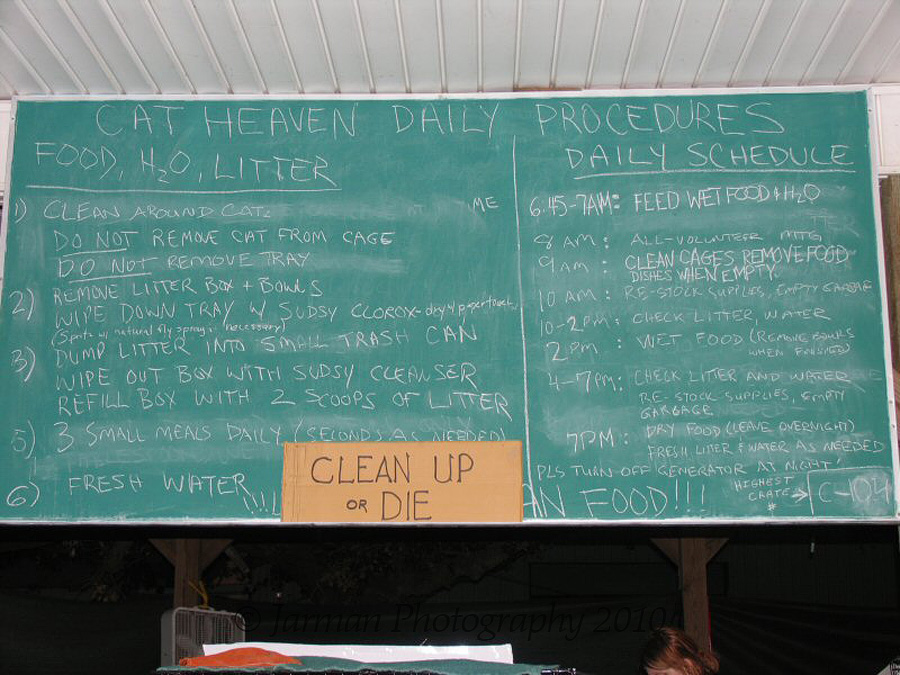 CAT HEAVEN DAILY PROCEDURES
FOOD, H2O, LITTER
1) CLEAN AROUND CAT ME
DO NOT REMOVE CAT FROM CAGE
DO NOT REMOVE TRAY
2) REMOVE LITTER BOX + BOWLS
WIPE DOWN TRAY W/ SUDSY CLOROX - dry w/ paper
(Spritz w/ natural fly spray if necessary)
3) DUMP LITTER INTO SMALL TRASH CAN
WIPE OUT BOX WITH SUDSY CLEANSER
REFILL BOX WITH 2 SCOOPS OF LITTER
5) 3 SMALL MEALS DAILY (SECONDS AS NEEDED)
6) FRESH WATER
DAILY SCHEDULE
6:45-7AM: FEED WET FOOD + H2O
8 AM: ALL-VOLUNTEER MTG
9 AM: CLEAN CAGES REMOVE FOOD
DISHES WHEN EMPTY.
10 AM: RE-STOCK SUPPLIES, EMPTY GARBAGE
10-2PM: CHECK LITTER, WATER
2 PM: WET FOOD (REMOVE BOWLS
WHEN FINISHED)
4-7PM: CHECK LITTER AND WATER
RE-STOCK SUPPLIES, EMPTY
GARBAGE
7PM: DRY FOOD (LEAVE OVERNIGHT)
FRESH LITTER + WATER AS NEEDED
PLS TURN OFF GENERATOR AT NIGHT!
AN FOOD!!!
HIGHEST
CRATE → C-104
#
CLEAN UP
OR DIE
© Jarman Photography 2010